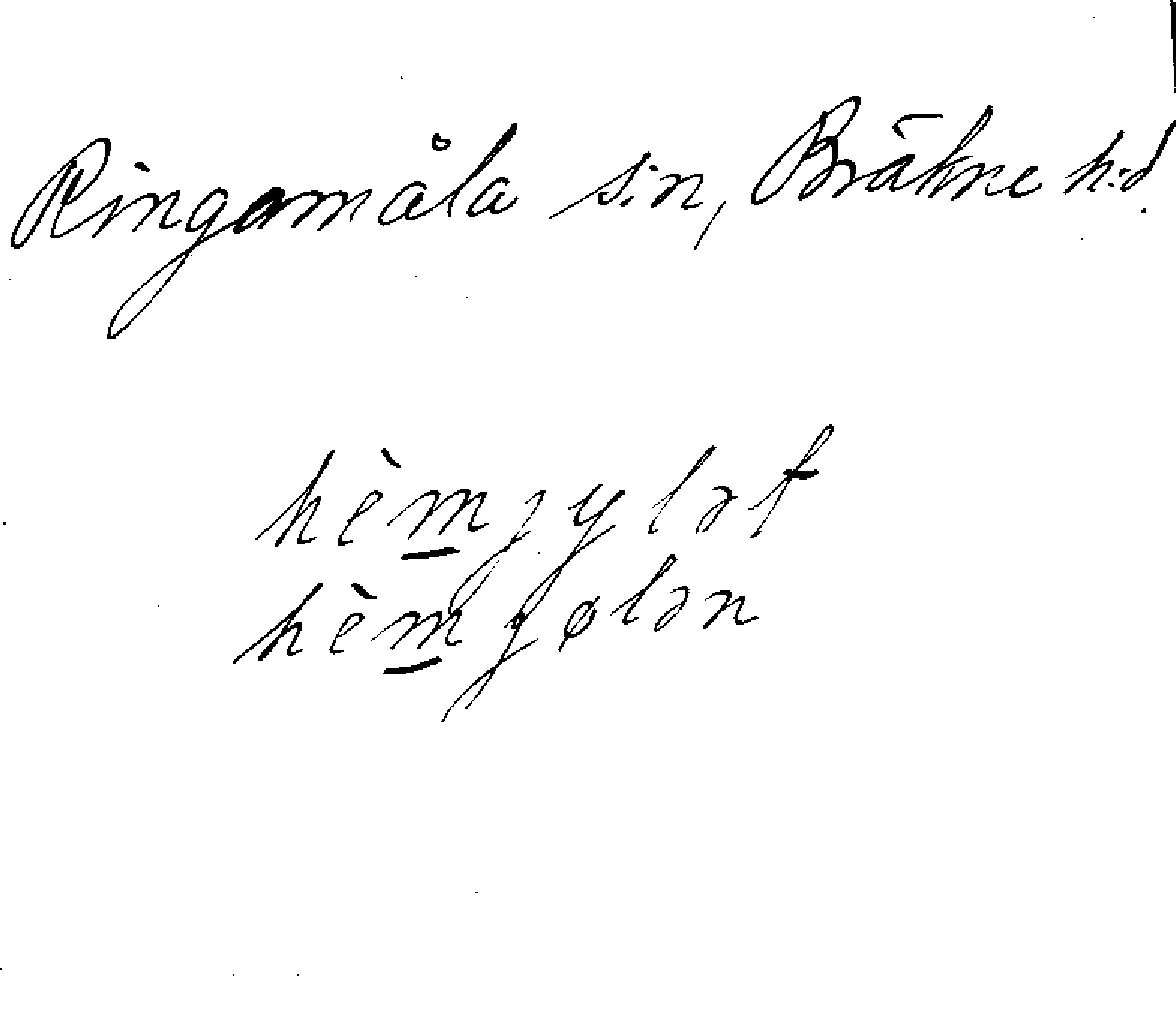 Ringamåla s:n, Bräkne h:d.
hèmȷylət
hèmȷølən